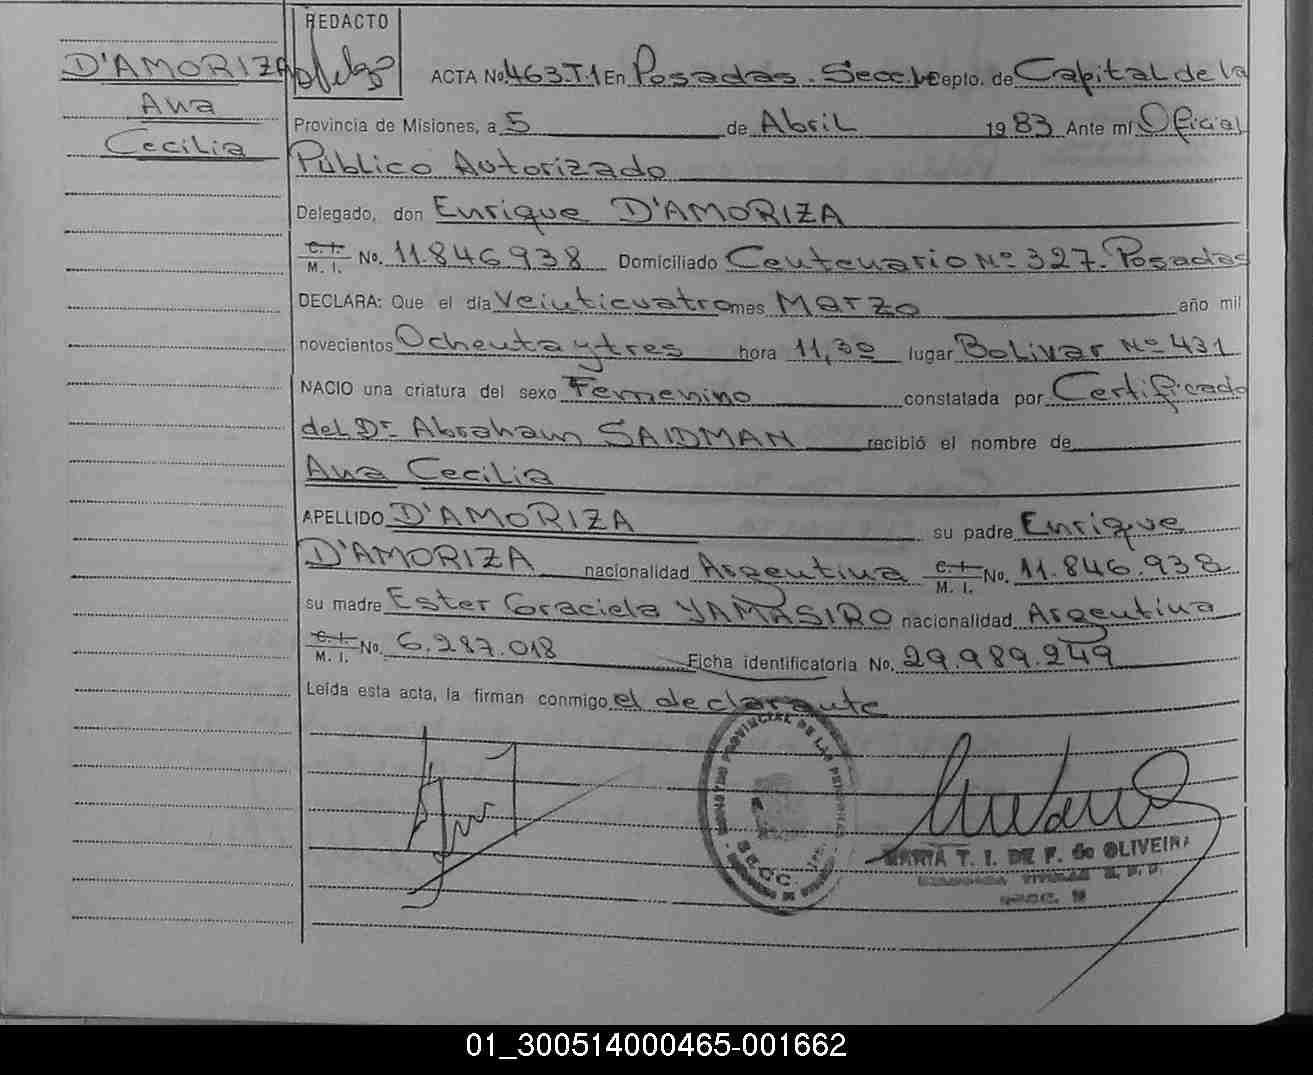 REDACTO
D'AMORIZA
Ana
Cecilia
ACTA No. 463.T.1 En Posadas. Secc. Depto. de Capital de la
Provincia de Misiones, a 5 de Abril 1983 Ante mí Oficial
Público Autorizado
Delegado, don Enrique D'AMORIZA
C. I. M. I. No. 11.846.938 Domiciliado Centenario Nº 327. Posadas
DECLARA: Que el día Veinticuatro mes Marzo año mil
novecientos Ochenta y tres hora 11,30 lugar Bolivar Nº 431
NACIO una criatura del sexo Femenino constatada por Certificado
del Dr Abraham SAIDMAN recibió el nombre de
Ana Cecilia
APELLIDO D'AMORIZA su padre Enrique
D'AMORIZA nacionalidad Argentina C. I. M. I. No. 11.846.938
su madre Ester Graciela YAMASIRO nacionalidad Argentina
C. I. M. I. No. 6.287.018 Ficha identificatoria No. 29.989.249
Leída esta acta, la firman conmigo el declarante
REGISTRO PROVINCIAL DE LAS PERSONAS
SECC.
MARIA T. I. DE F. de OLIVEIRA
01_300514000465-001662